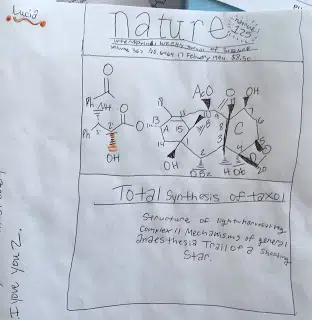 Lucia
nature
125
international weekly journal of science
Volume 367 No. 6464 17 February 1994 $8.50
O
AcO
O
OH
Ph
NH
O
Ph
O
13
A
15
C
14
OH
OH
1
2
3
4
5
6
7
8
9
10
20
OBz
H
Total Synthesis of taxol
Structure of light-harvesting
Complex II Mechanisms of general
anaesthesia Trail of a shooting
Star.
I love you 2.